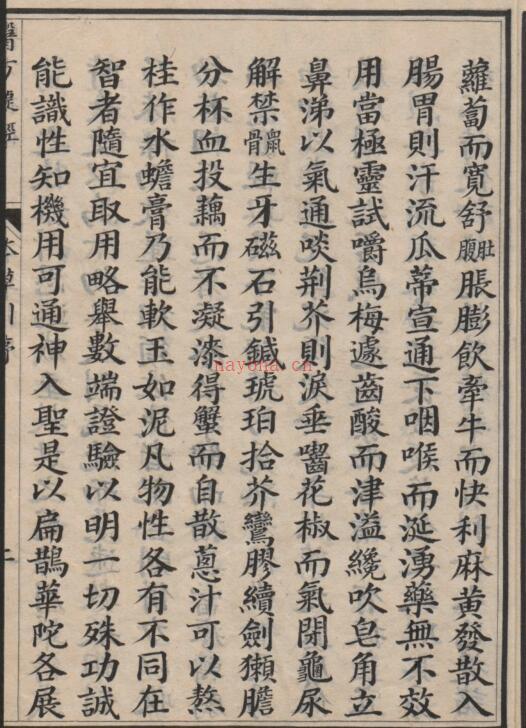 蘿蔔而寬舒肚腹脹膨飲牽牛而快利麻黃發散入
腸胃則汗流瓜蒂宣通下咽喉而涎湧藥無不效
用當極靈試嚼烏梅遽齒酸而津溢纔吹皂角立
鼻涕以氣通啖荊芥則淚垂嚙花椒而氣閉龜尿
解禁鼠骨生牙磁石引鍼琥珀拾芥鸞膠續劍獺膽
分杯血投藕而不凝漆得蟹而自散蔥汁可以熬
桂作水蟾膏乃能軟玉如泥凡物性各有不同在
智者隨宜取用略舉數端證驗以明一切殊功誠
能識性知機用可通神入聖是以扁鵲華陀各展
二
nayona.cn